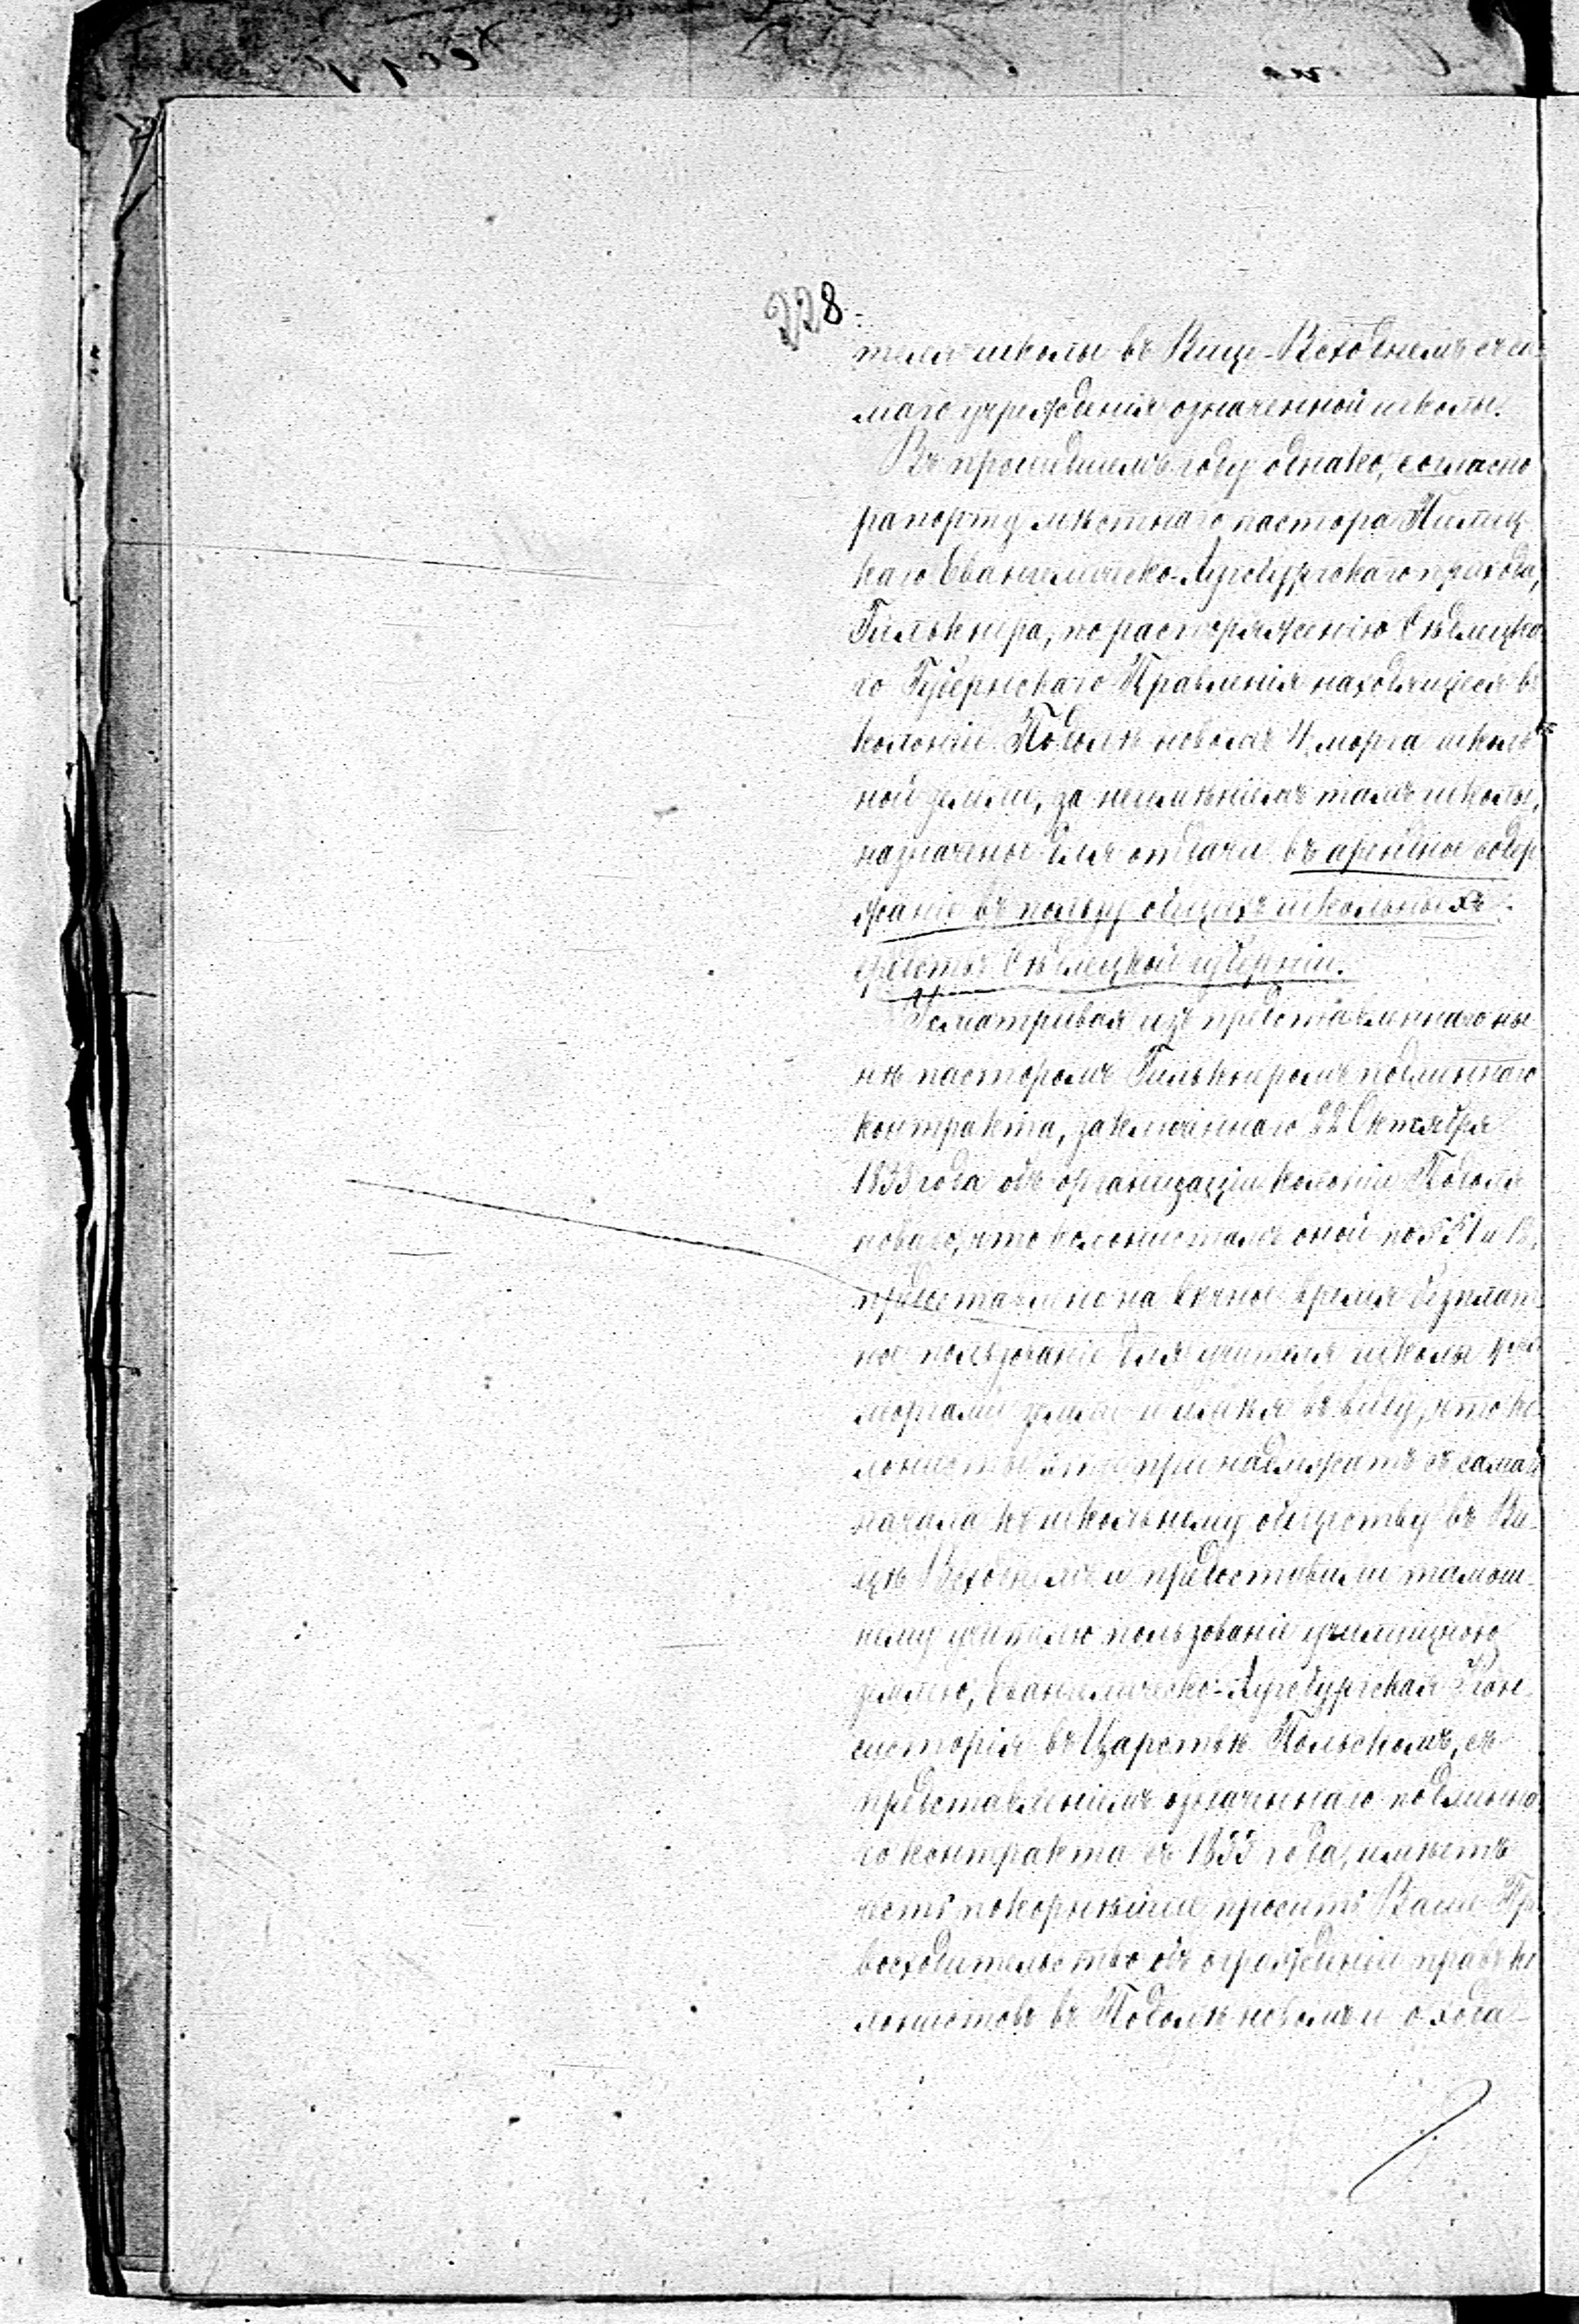 228
теля школы въ Вице-Всходнемъ съ са-
маго учрежденія означенной школы.
Въ прошедшемъ году однако, согласно
рапорту мѣстнаго пастора Пилиц-
каго Евангелическо-Аугсбургскаго прихода,
Гилькнера, по распоряженію Сѣдлецка-
го Губернскаго Правленія находящіеся въ
колоніи Подолѣ новомъ 4 морга школь-
ной земли, за неимѣніемъ тамъ школы,
назначены для отдачи въ арендное содер-
жаніе въ пользу общихъ школьныхъ
средствъ Сѣдлецкой губерніи.
Усматривая изъ представленнаго ны-
нѣ пасторомъ Гилькнеромъ подлиннаго
контракта, заключеннаго 22 Октября
1833 года объ организаціи колоніи Подоля
новаго, что колонистамъ оной по §§
предоставлено на вѣчное время безплат-
ное пользованіе для учителя школы 4мя
моргами земли и имѣя въ виду, что ко-
лонисты эти принадлежатъ съ самаго
начала къ школьному обществу въ Ви-
цѣ Всходнемъ и предоставили тамош-
нему учителю пользованіе училищною
землею, Евангелическо-Аугсбургская Кон-
систорія въ Царствѣ Польскомъ, съ
представленіемъ означеннаго подлинна-
го контракта съ 1833 года, имѣетъ
честь покорнѣйше просить Ваше Пре-
восходительство объ огражденіи правъ ко-
лонистовъ въ Подолѣ новомъ и о хода-